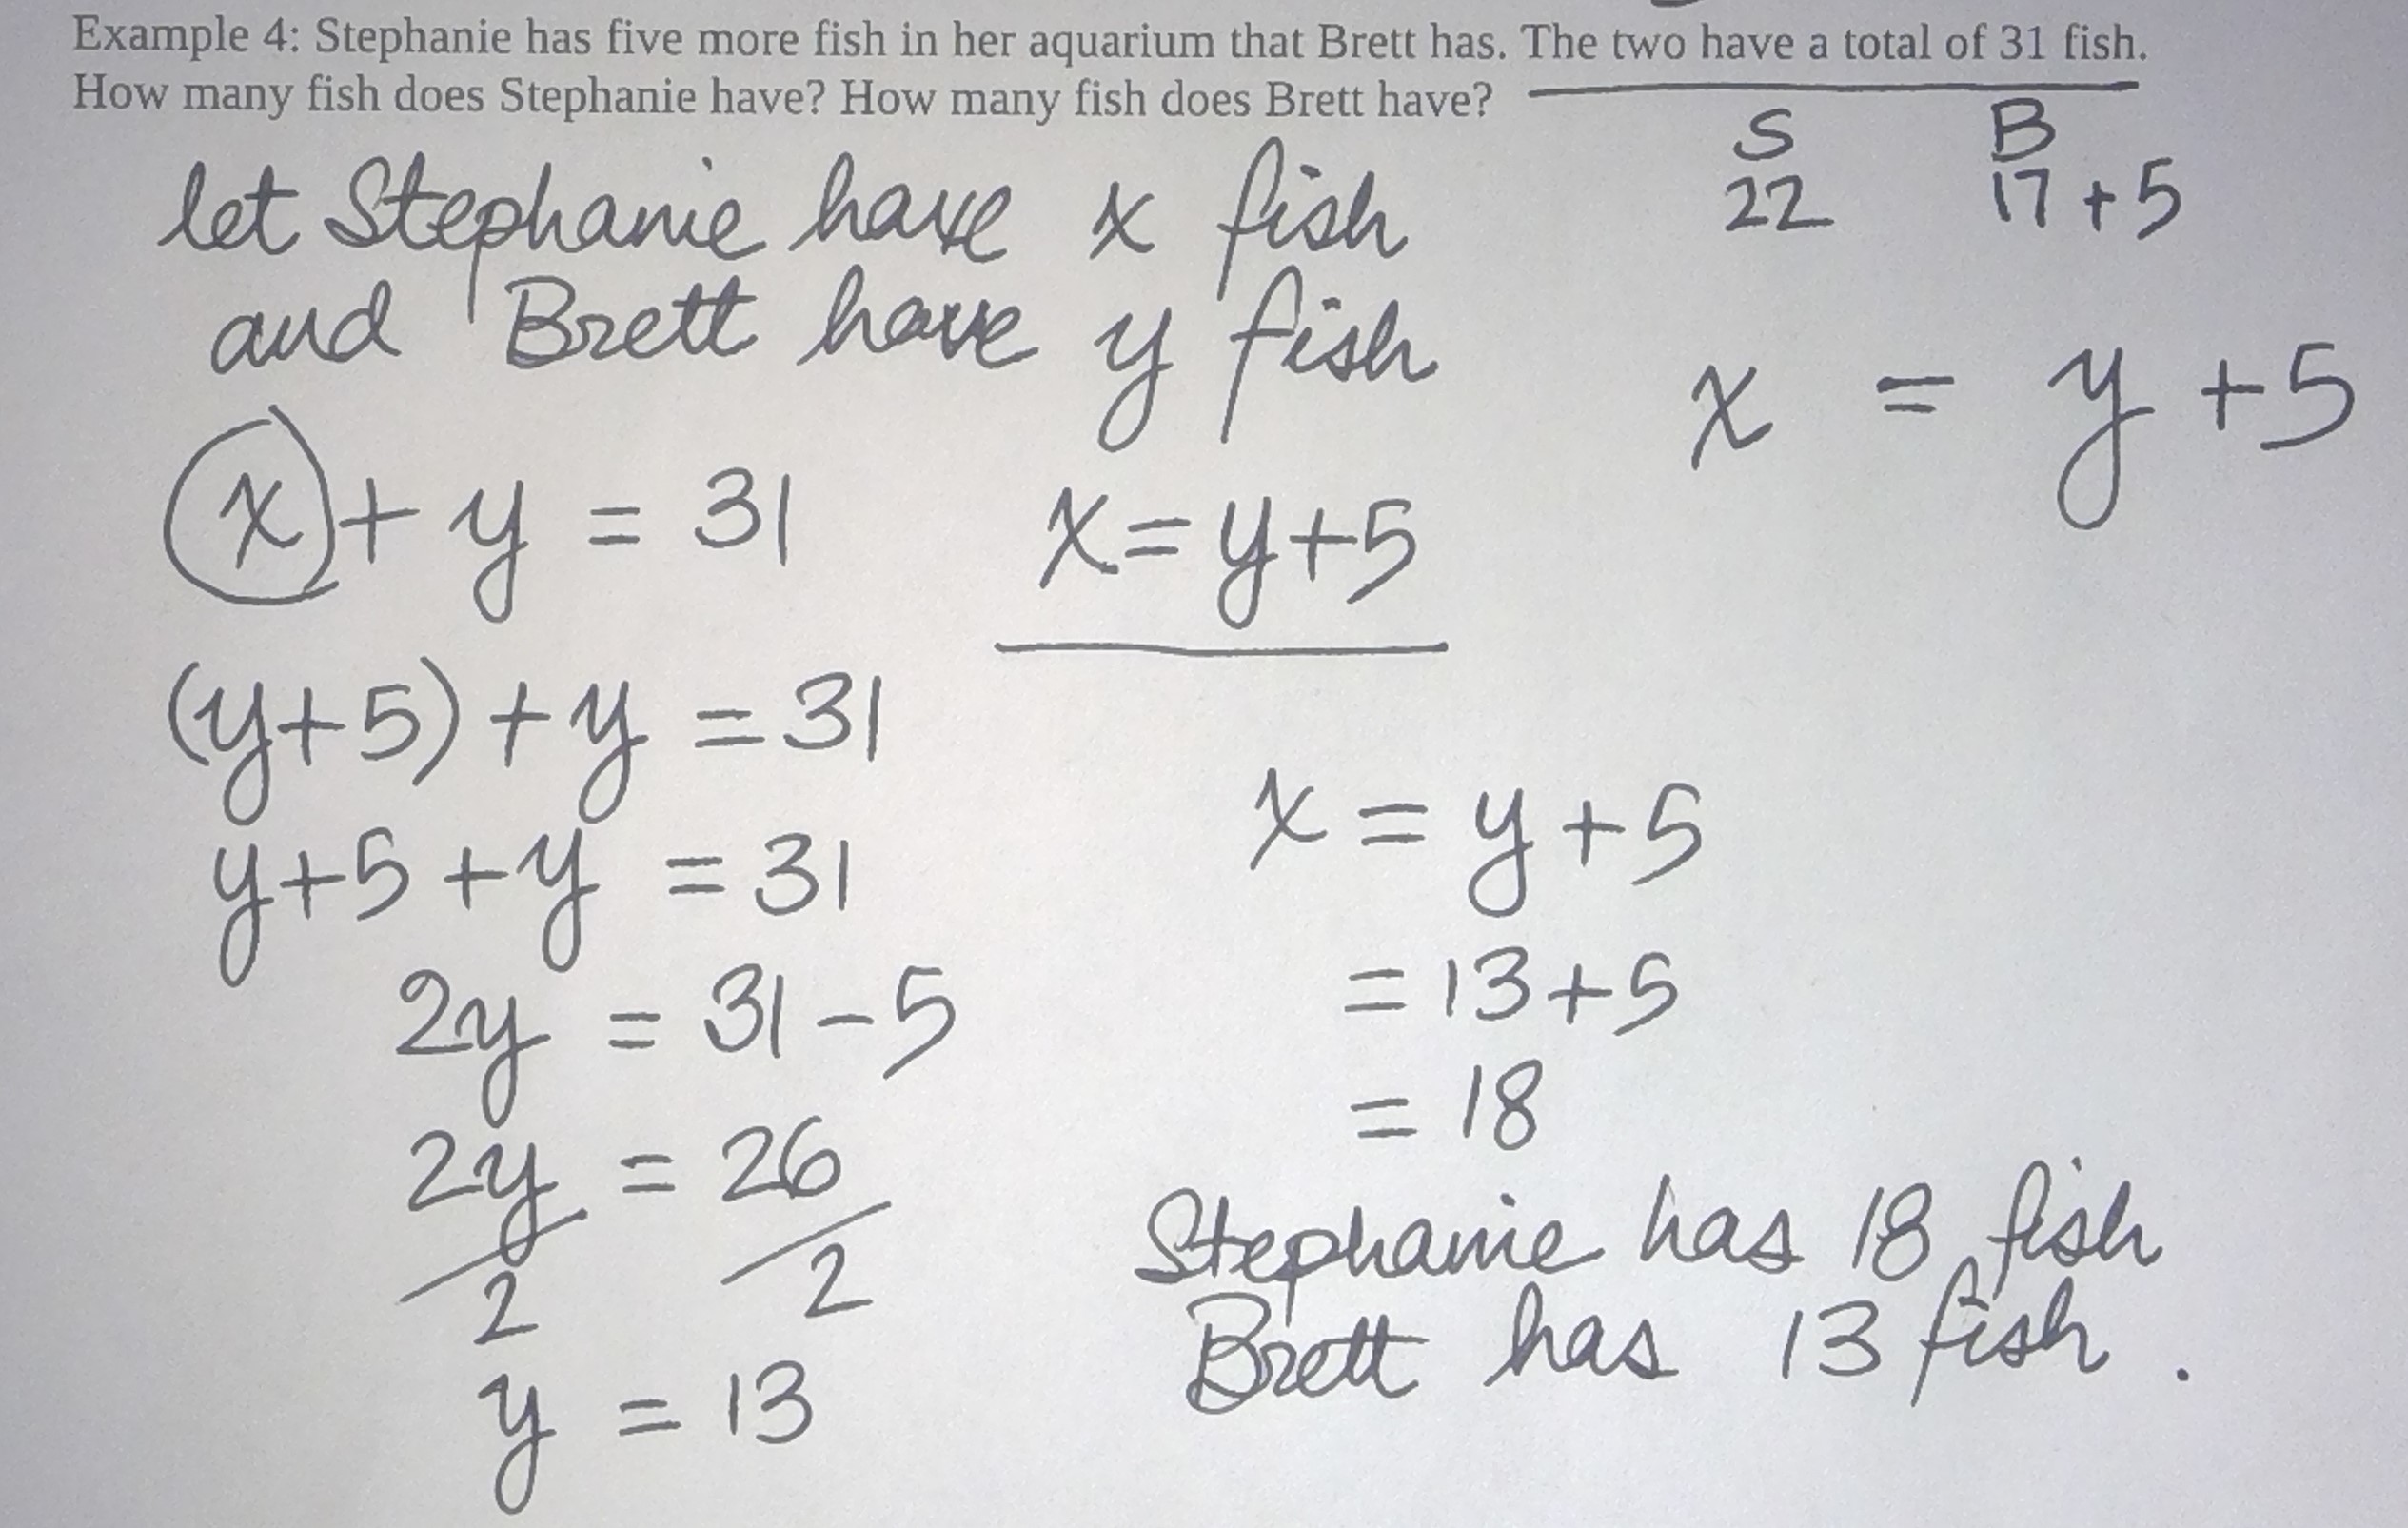 Example 4: Stephanie has five more fish in her aquarium that Brett has. The two have a total of 31 fish.
How many fish does Stephanie have? How many fish does Brett have?
S B
22 17 + 5
let Stephanie have x fish
and Brett have y fish
x = y + 5
x + y = 31
x = y + 5
(y + 5) + y = 31
y + 5 + y = 31
2y = 31 - 5
2y/2 = 26/2
y = 13
x = y + 5
= 13 + 5
= 18
Stephanie has 18 fish
Brett has 13 fish.